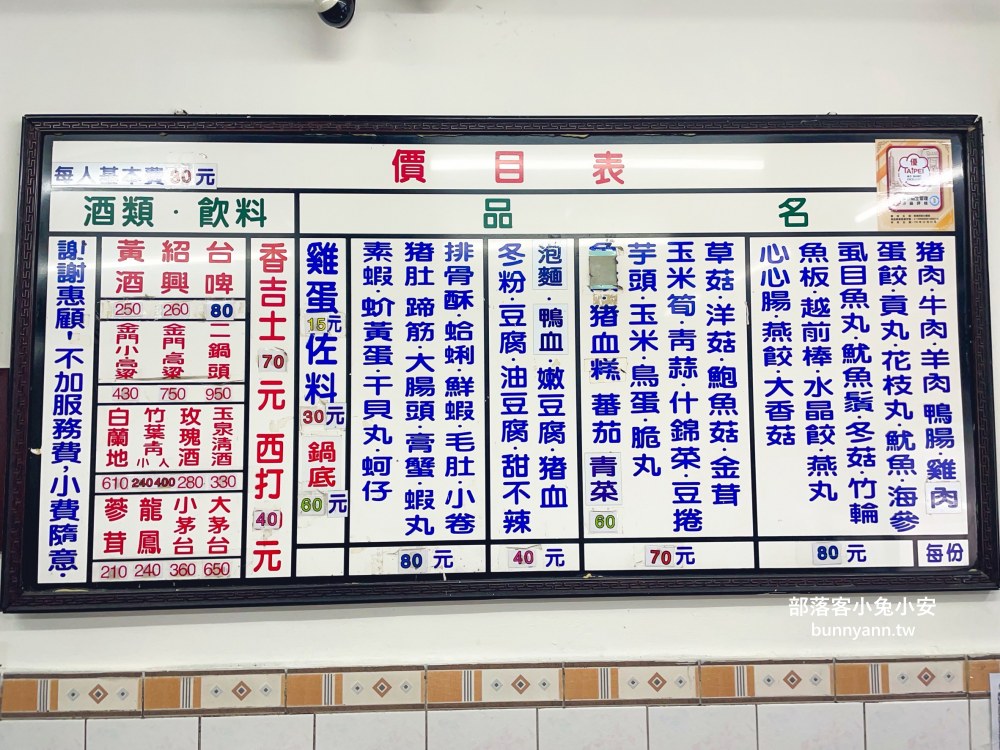 價目表
每人基本費30元
品名
酒類·飲料
每份
豬肉·牛肉·羊肉 鴨腸·雞肉
蛋餃 貢丸·花枝丸·魷魚·海參
虱目魚丸·魷魚鬚·冬菇·竹輪
魚板·越前棒·水晶餃·燕丸
心心腸·燕餃·大香菇
80元
草菇·洋菇·鮑魚菇·金茸
玉米筍·青蒜·什錦菜·豆捲
芋頭·玉米·鳥蛋 脆丸
豬血糕 蕃茄 青菜 60
70元
泡麵·鴨血·嫩豆腐·豬血
冬粉·豆腐·油豆腐 甜不辣
40元
排骨酥·蛤蜊·鮮蝦·毛肚·小卷
豬肚 蹄筋·大腸頭·膏蟹 蝦丸
素蝦 蚧黃蛋·干貝丸·蚵仔
80元
雞蛋15元 佐料30元 鍋底60元
香吉士70元 西打40元
台啤 80
紹興 260
黃酒 250
二鍋頭 950
金門高粱 750
金門小高粱 430
玉泉清酒 330
玫瑰酒 280
竹葉青 小 人 240 400
白蘭地 610
大茅台 650
小茅台 360
龍鳳 240
蔘茸 210
謝謝惠顧,不加服務費,小費隨意·
優
TAIPEI
部落客小兔小安
bunnyann.tw